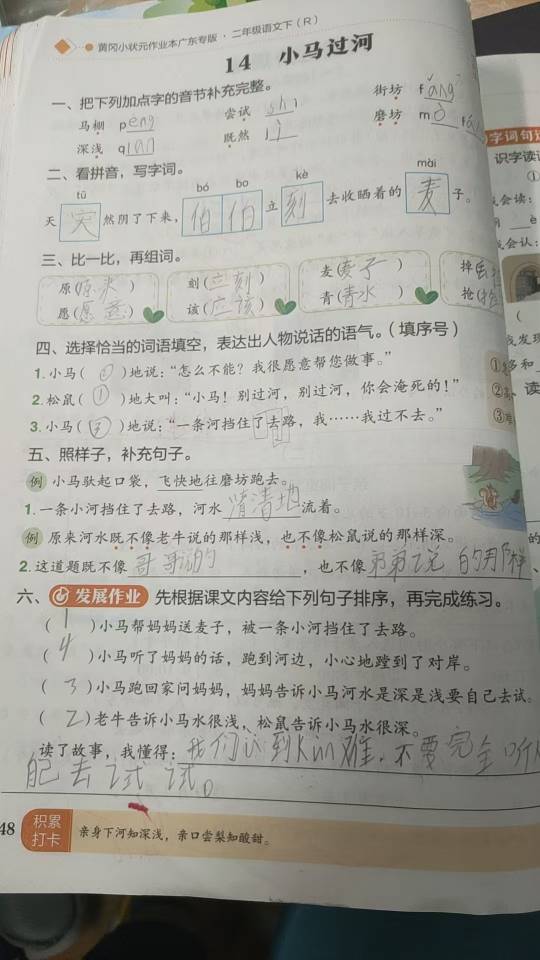 黄冈小状元作业本广东专版·二年级语文下（R）
14 小马过河
一、把下列加点字的音节补充完整。
马棚 péng 尝试 shì 街坊 fáng
深浅 qiǎn 既然 jì 磨坊 mò fáng
二、看拼音，写字词。
tū bó bo kè mài
天突然阴了下来，伯伯立刻去收晒着的麦子。
三、比一比，再组词。
原(原来) 刻(立刻) 麦(麦子)
愿(愿意) 该(应该) 青(青水) 抢(抢
四、选择恰当的词语填空，表达出人物说话的语气。（填序号）
1.小马( )地说：“怎么不能？我很愿意帮您做事。” ①
2.松鼠(①)地大叫：“小马！别过河，别过河，你会淹死的！” ②
3.小马(③)地说：“一条河挡住了去路，我……我过不去。” ③
五、照样子，补充句子。
例 小马驮起口袋，飞快地往磨坊跑去。
1.一条小河挡住了去路，河水清清地流着。
例 原来河水既不像老牛说的那样浅，也不像松鼠说的那样深。
2.这道题既不像哥哥说的，也不像弟弟说的那样、
六、发展作业 先根据课文内容给下列句子排序，再完成练习。
(1)小马帮妈妈送麦子，被一条小河挡住了去路。
(4)小马听了妈妈的话，跑到河边，小心地蹚到了对岸。
(3)小马跑回家问妈妈，妈妈告诉小马河水是深是浅要自己去试。
(2)老牛告诉小马水很浅，松鼠告诉小马水很深。
读了故事，我懂得：我们认到kùn难，不要完全听
自己去试试。
48 积累打卡 亲身下河知深浅，亲口尝梨知酸甜。
字词句
识字读
会读：
会认：